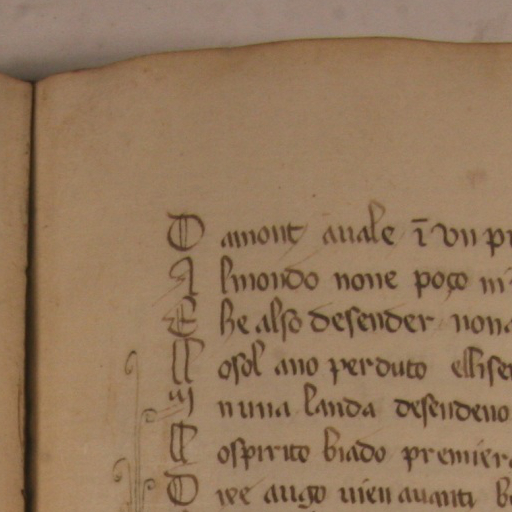 D amont auale ī vn pr
A lmondo none poço in
C he also desender non a
N osol ano perduto ellise
IN nuna landa desendeno
L ospirito biado premiera
O we augo uien auanti b